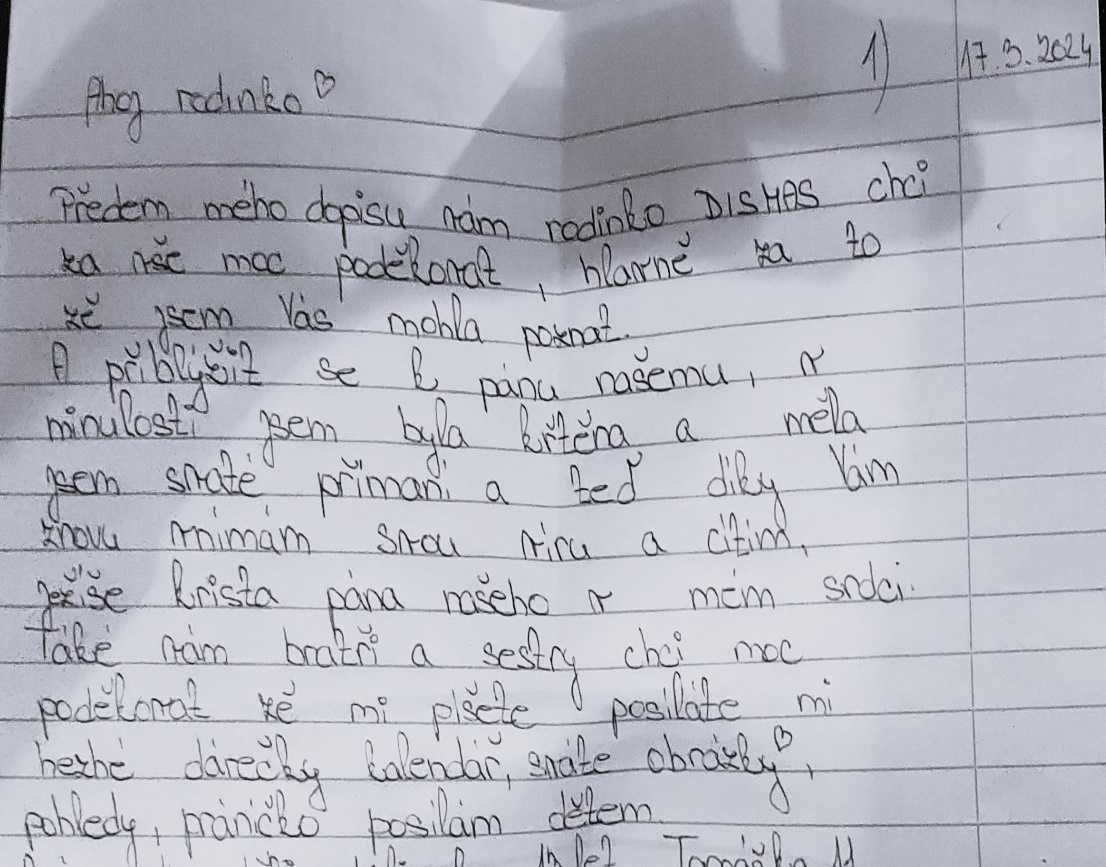 1) 17.3.2024
Ahoj rodinko ♡
Předem mého dopisu vám rodinko DISMAS chci
za vše moc poděkovat, hlavně za to
žě jsem Vás mohla poznat.
A přiblýžit se k pánu našemu, v
minulosti jsem byla křtěna a měla
jsem svaté příman\u00ed a teď díky Vám
znovu vnímám svou víru a cítím,
ježíše krista pána našeho v mém srdci.
Také vám bratři a sestry chci moc
poděkovat žě mi píšete posíláte mi
hezké dárečky kalendář, sváte obrázky♡,
pohledy, práníčko posílám dětem.
let Tomáška 11